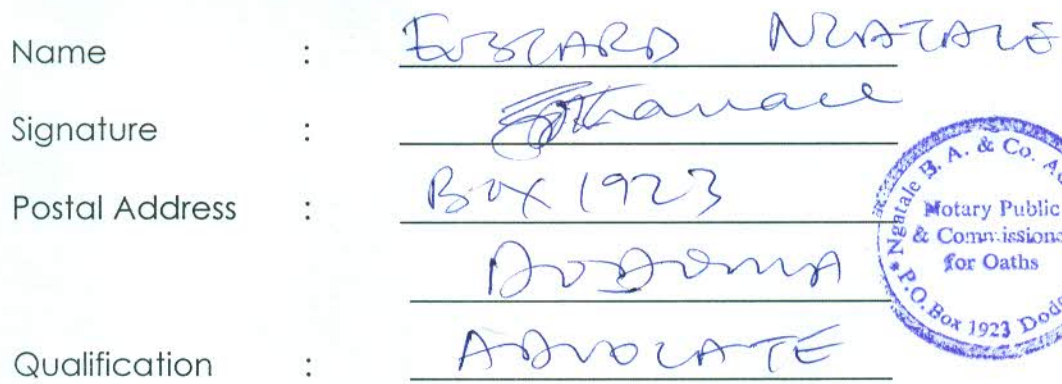 Name :
NGATALE
Signature :
Postal Address : BOX 1923
DODOMA
Qualification : ADVOCATE
Ngatale B. A. & Co.
Notary Public
& Commissione
for Oaths
P.O. Box 1923 Dodo